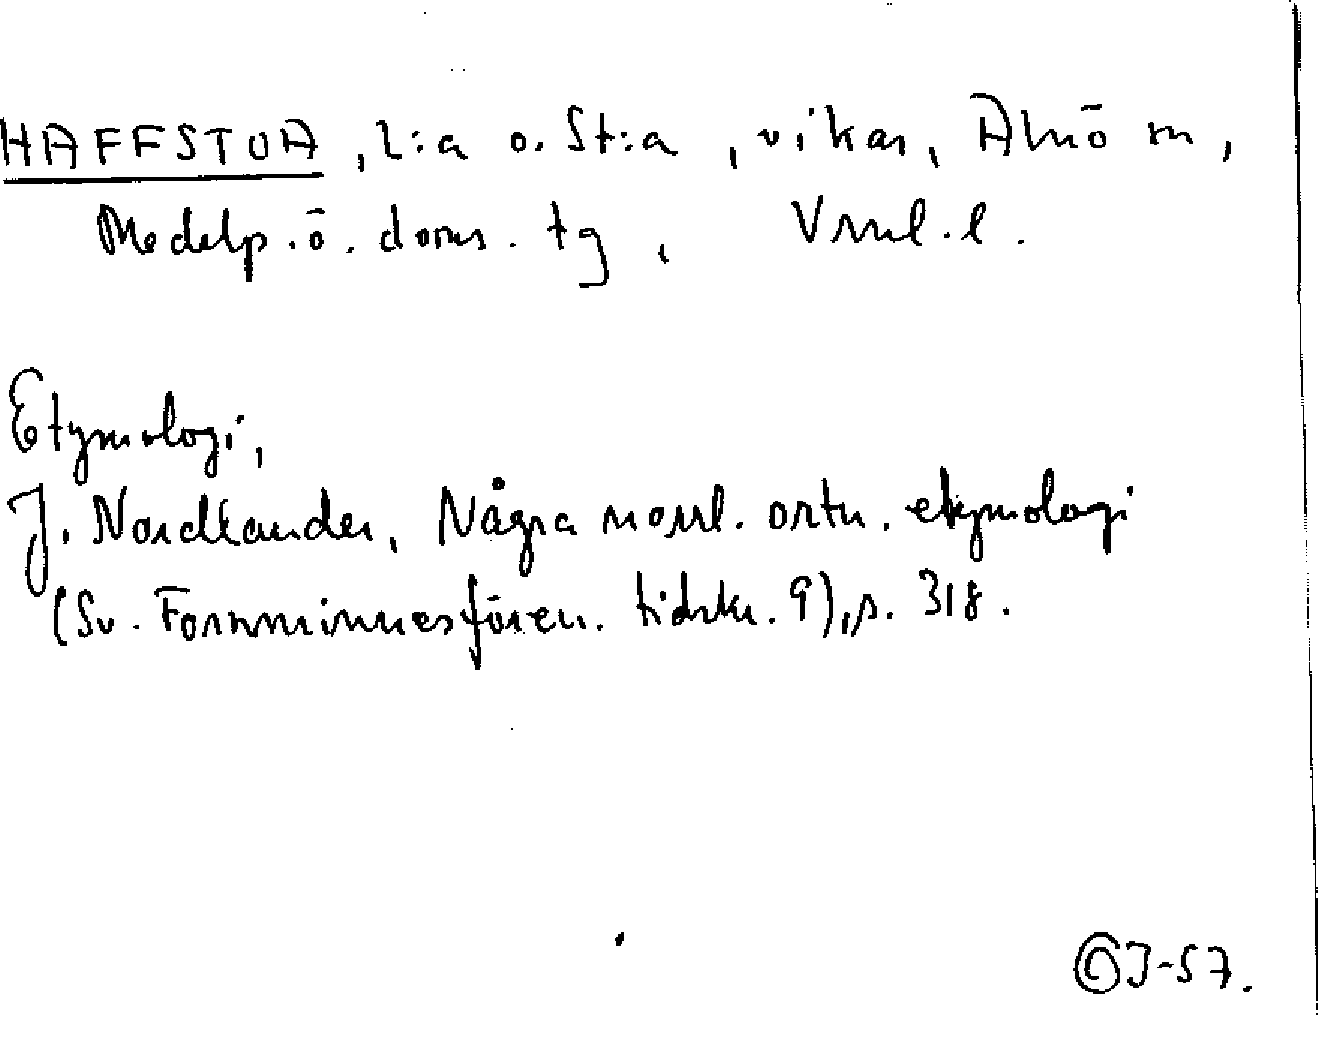 HAFFSTUA, L:a o. St:a, vikar, Alnö sn,
Medelp. ö. doms. tg, Vrnl. l.
Etymologi,
J. Nordlander, Några norrl. ortn. etymologi
(Sv. Fornminnesfören. tidskr. 9), s. 318.
-57.